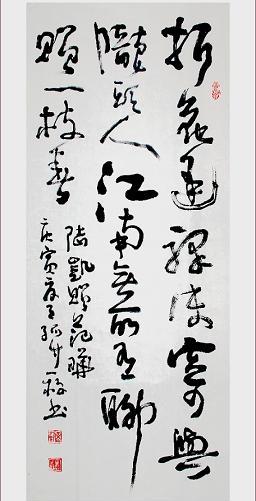 折花逢驛使寄與
隴頭人江南無所有聊
贈一枝春
陸凱贈范曄
庚寅